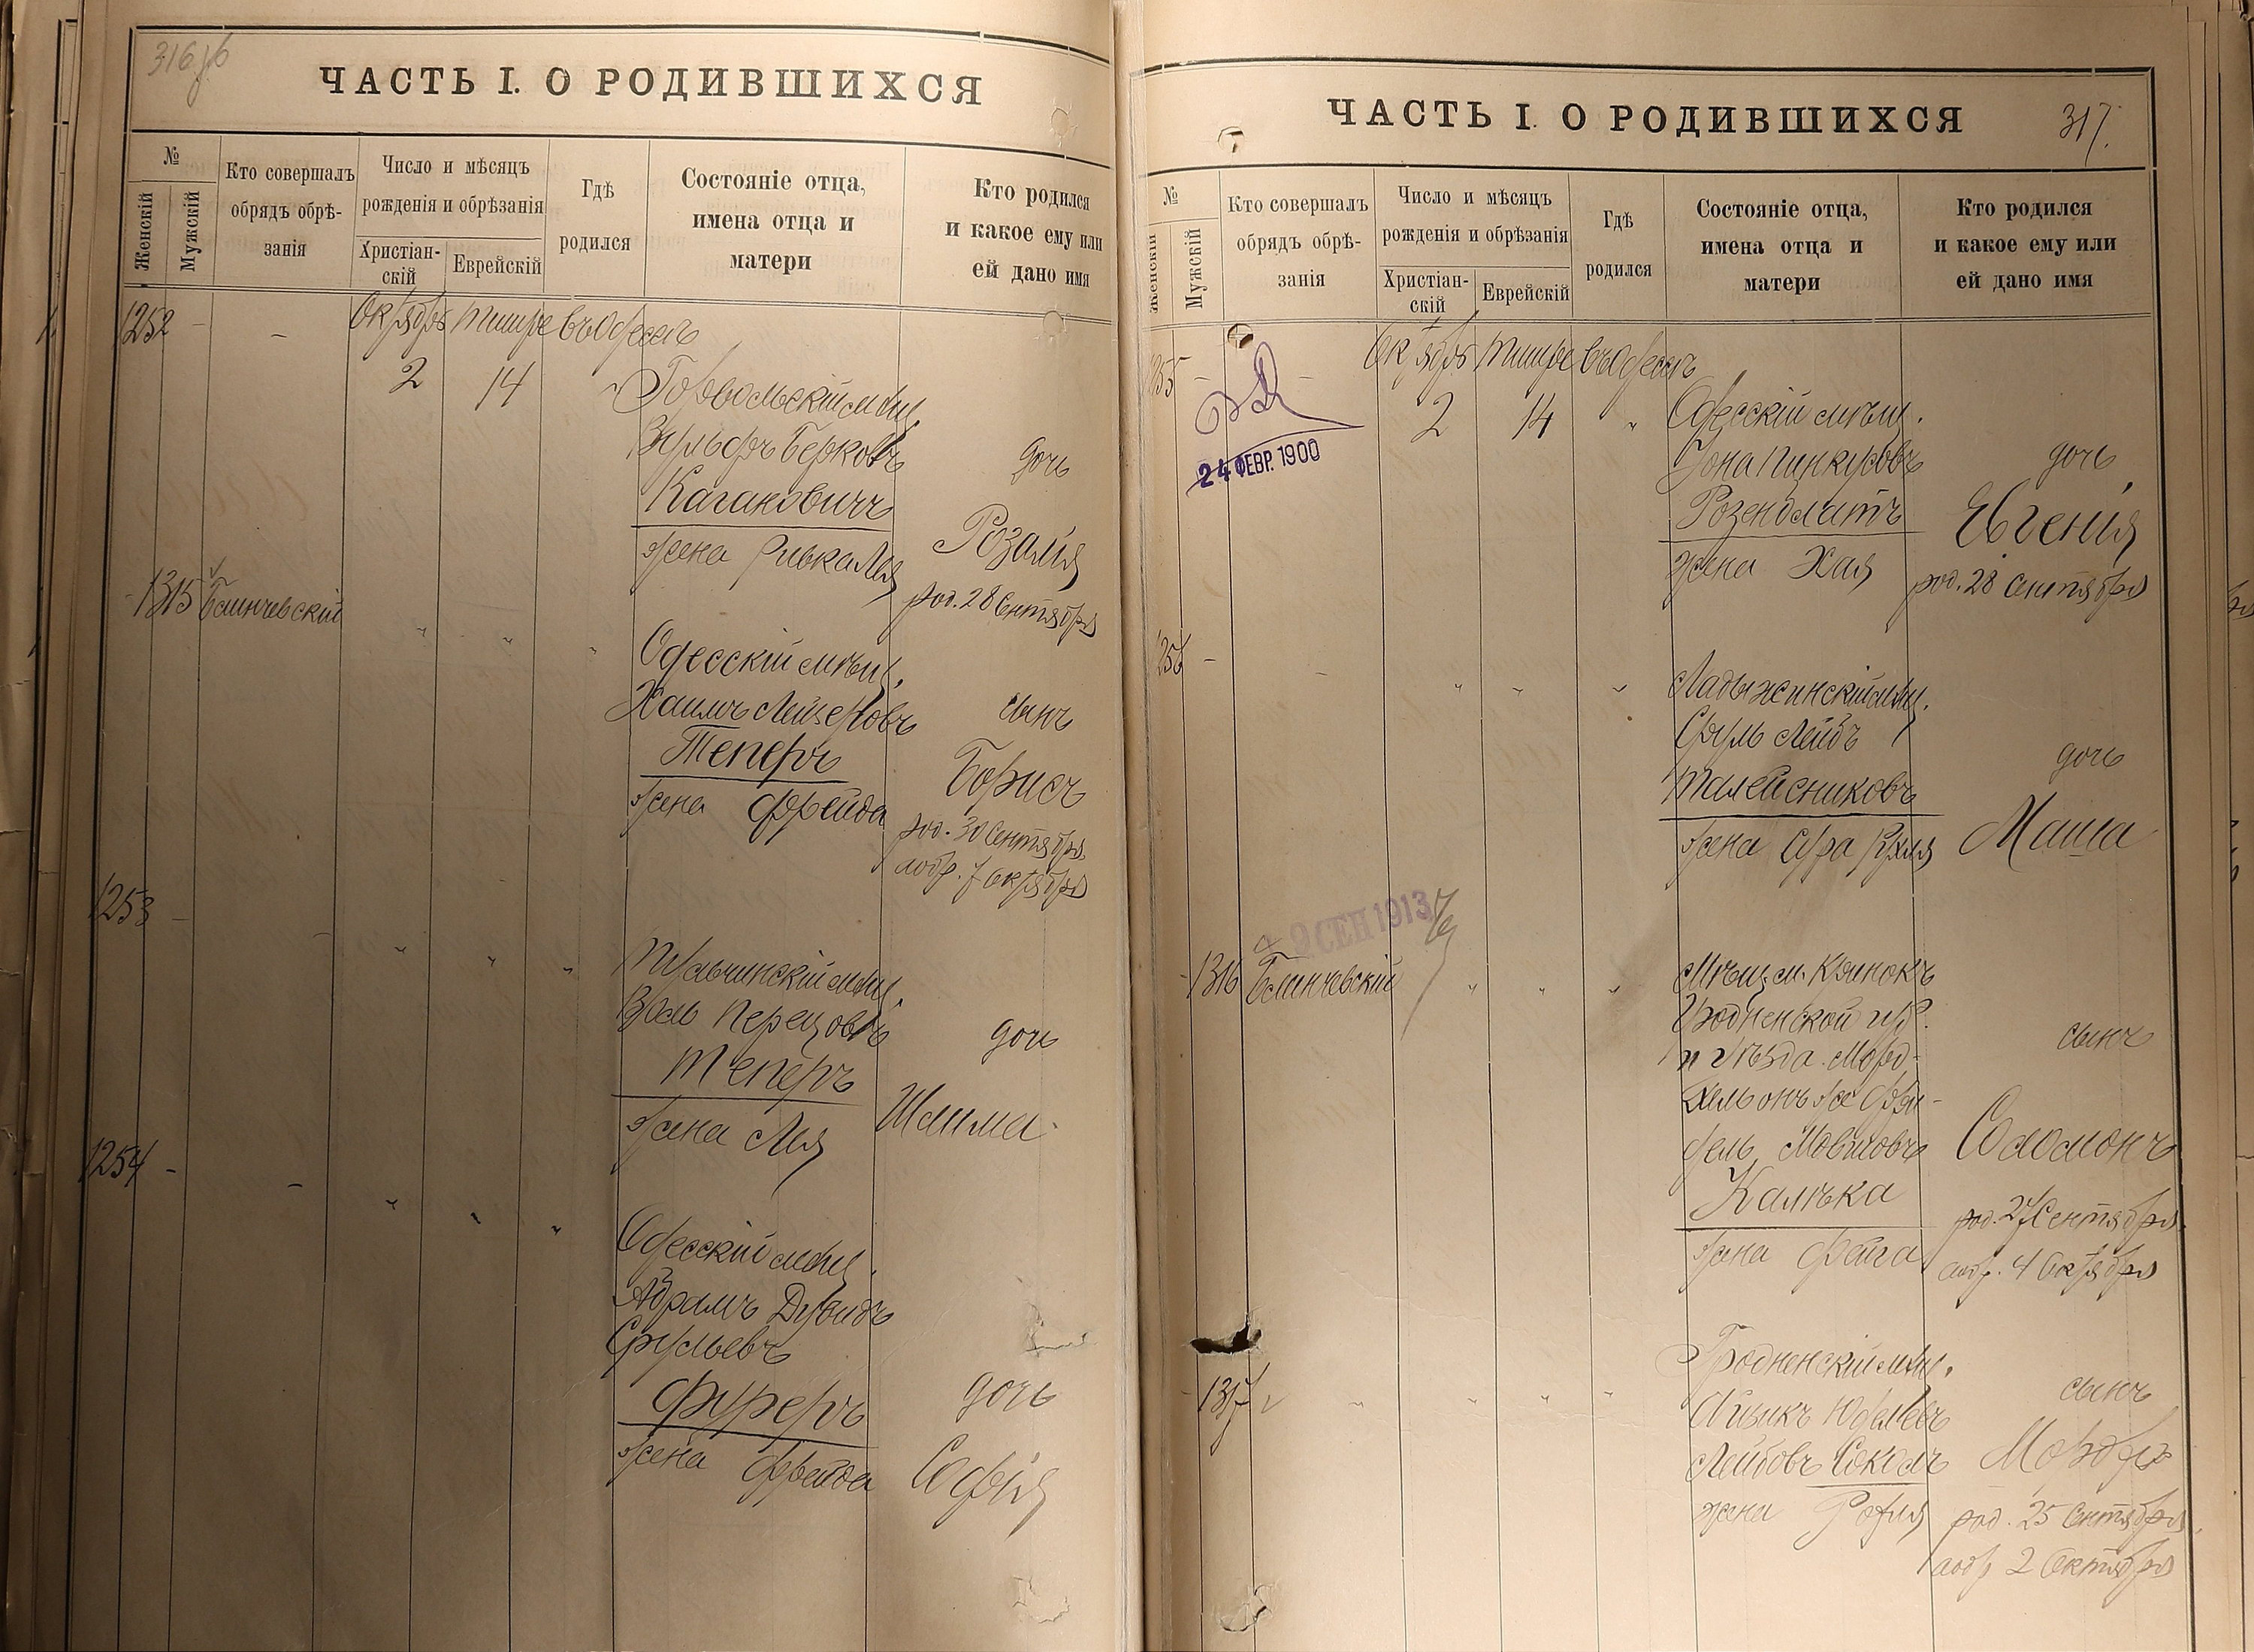 316 об
ЧАСТЬ I. О РОДИВШИХСЯ
№
Женскій
Мужскій
Кто совершалъ
обрядъ обрѣ-
занія
Число и мѣсяцъ
рожденія и обрѣзанія
Христіан-
скій
Еврейскій
Гдѣ
родился
Состояніе отца,
имена отца и
матери
Кто родился
и какое ему или
ей дано имя
1252 - - Октябрь Тишре въ Одессѣ
2 14 "
мѣщ.
Вульфъ Берковъ
Кагановичъ
жена Ривка Лея
дочь
Розалія
род. 28 Сентября
1315 Блинчевскій " " "
Одесскій мѣщ.
Хаимъ Лейзеровъ
Теперъ
жена Фрейда
сынъ
Борисъ
род. 30 Сентября
а обр. 7 Октября
1253 - - " " "
Тульчинскій мѣщ.
Перецовъ
Теперъ
жена Лея
дочь
1254 - - " " "
Одесскій мѣщ.
Абрамъ Дувидъ
Срульевъ
Фуреръ
жена Фрейда
дочь
Софія
ЧАСТЬ I. О РОДИВШИХСЯ
317.
№
Женскій
Мужскій
Кто совершалъ
обрядъ обрѣ-
занія
Число и мѣсяцъ
рожденія и обрѣзанія
Христіан-
скій
Еврейскій
Гдѣ
родился
Состояніе отца,
имена отца и
матери
Кто родился
и какое ему или
ей дано имя
1255 - - Октябрь Тишре въ Одессѣ
2 14 "
24 ФЕВР. 1900
Одесскій мѣщ.
Іона Пинкусовъ
Розенблатъ
жена Хая
дочь
Евгенія
род. 28 Сентября
1256 - - " " "
Ладыжинскій мѣщ.
Сруль Лейбъ
Талейсниковъ
жена Сура Рухля
дочь
Маша
9 СЕН 1913
1316 Блинчевскій " " "
Мѣщ. м. Крынокъ
Гродненской губ.
и уѣзда Морд-
хель онъ же Фри-
дель Мовшовъ
Калѣка
жена Фейга
сынъ
Соломонъ
род. 27 Сентября.
а обр. 4 Октября
1317 " " " "
Гродненскій мѣщ.
Ицикъ Юделевъ
Лейбовъ Соколъ
жена
сынъ
Мордхе
род. 25 Сентября.
а обр 2 Октября